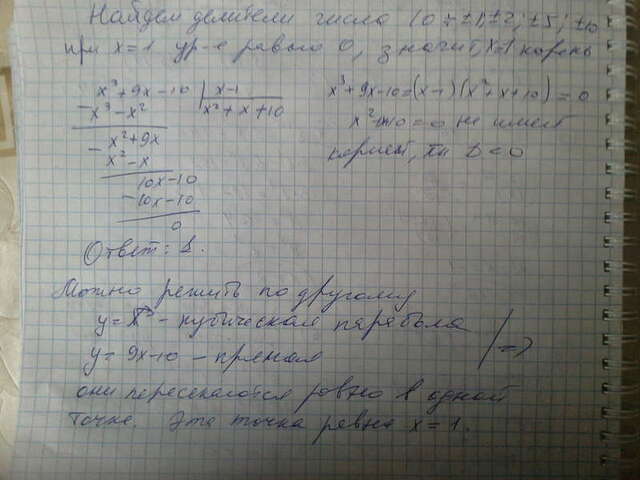 Найдем делители числа 10 : ±1; ±2; ±5; ±10
при x=1 ур-е равно 0, значит, x=1 корень
x³+9x-10 | x-1
- x³-x² x²+x+10
- x²+9x
x²-x
10x-10
- 10x-10
0
x³+9x-10=(x-1)(x²+x+10)=0
x²+x+10=0 не имеет
корней, тк D<0
Ответ: 1.
Можно решить по другому
y=x³ - кубическая парабола
y=9x-10 - прямая
=>
они пересекаются ровно в одной
точке. Эта точка равна x=1.